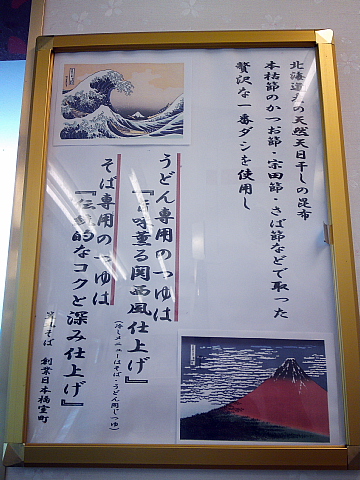 北海道産の天然天日干しの昆布
本枯節のかつお節・宗田節・さば節などで取った
贅沢な一番ダシを使用し
うどん専用のつゆは
味薫る関西風仕上げ』
(冷しメニューはそば・うどん同じつゆ)
そば専用のつゆは
『伝統的なコクと深み仕上げ』
そば 創業日本橋室町